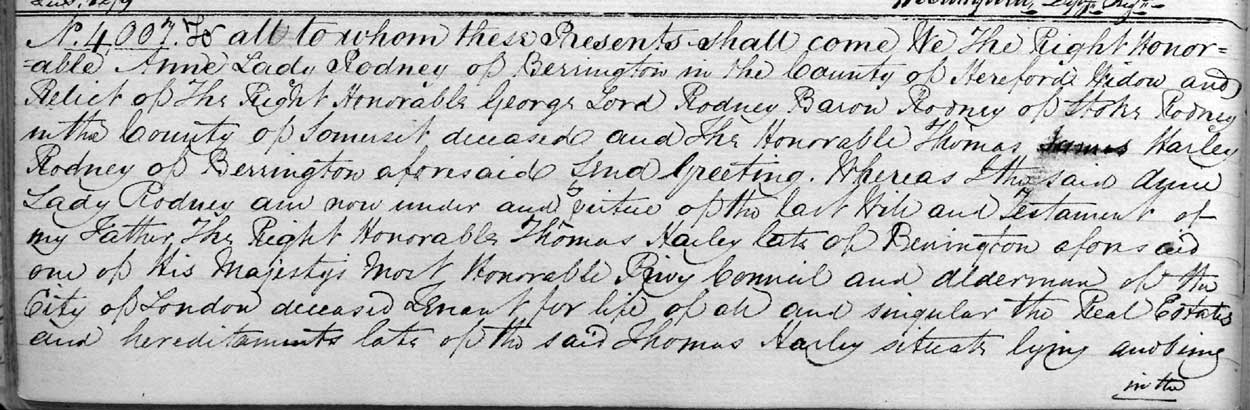 N. 4,007. To all to whom these Presents shall come We The Right Honor=
=able Anne Lady Rodney of Berrington in the County of Hereford Widow and
Relict of The Right Honorable George Lord Rodney Baron Rodney of Stoke Rodney
in the County of Somerset deceased and The Honorable Thomas James Harley
Rodney of Berrington aforesaid Send Greeting. Whereas I the said Anne
Lady Rodney am now under and virtue of the last Will and Testament of
my Father The Right Honorable Thomas Harley late of Berrington aforesaid
one of His Majesty's Most Honorable Privy Council and Alderman of the
City of London deceased Tenant for life of all and singular the Real Estates
and hereditaments late of the said Thomas Harley situate lying and being
in the